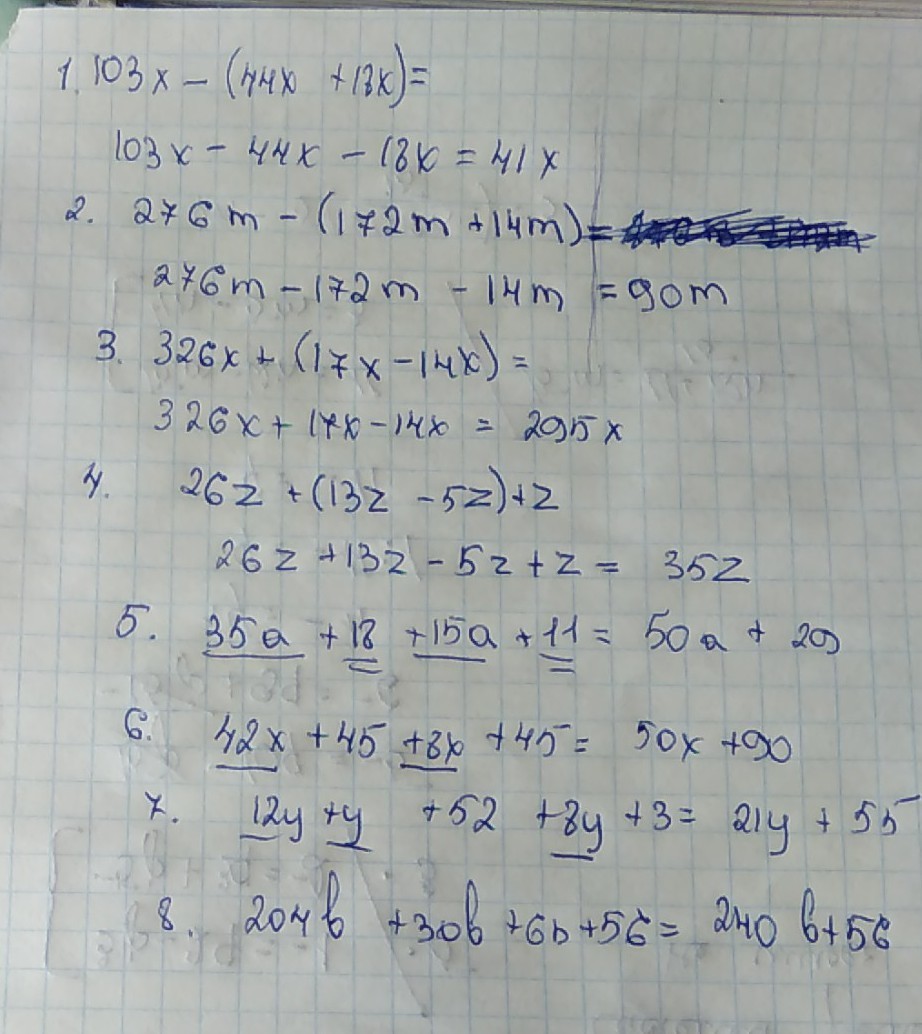 1. 103x - (44x + 18x) =
103x - 44x - 18x = 41x
2. 276m - (172m + 14m) =
276m - 172m - 14m = 90m
3. 326x + (17x - 14x) =
326x + 17x - 14x = 295x
4. 26z + (13z - 5z) + z
26z + 13z - 5z + z = 35z
5. 35a + 18 + 15a + 11 = 50a + 29
6. 42x + 45 + 8x + 45 = 50x + 90
7. 12y + y + 52 + 8y + 3 = 21y + 55
8. 204b + 30b + 6b + 56 = 240b + 56